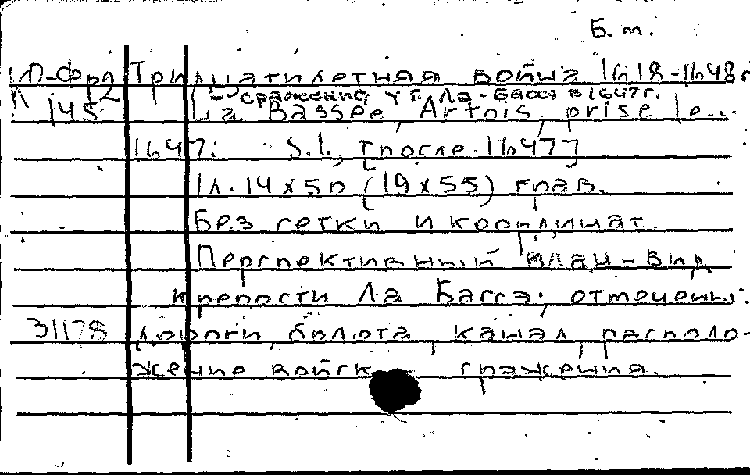 Б.т.
Тридцатилетняя война 1618-1648 г.
- сражение у г. Ла-Бассэ в 1647 г.
145 La Bassee, Artois, prise le...
1647. S.l., [после 1647]
1 л. 14 x 50 (19 x 55) грав.
Без сетки и координат.
Перспективный план-вид
крепости Ла Бассэ; отмечены:
31178 дороги, болота, канал, располо-
жение войск, сражения.